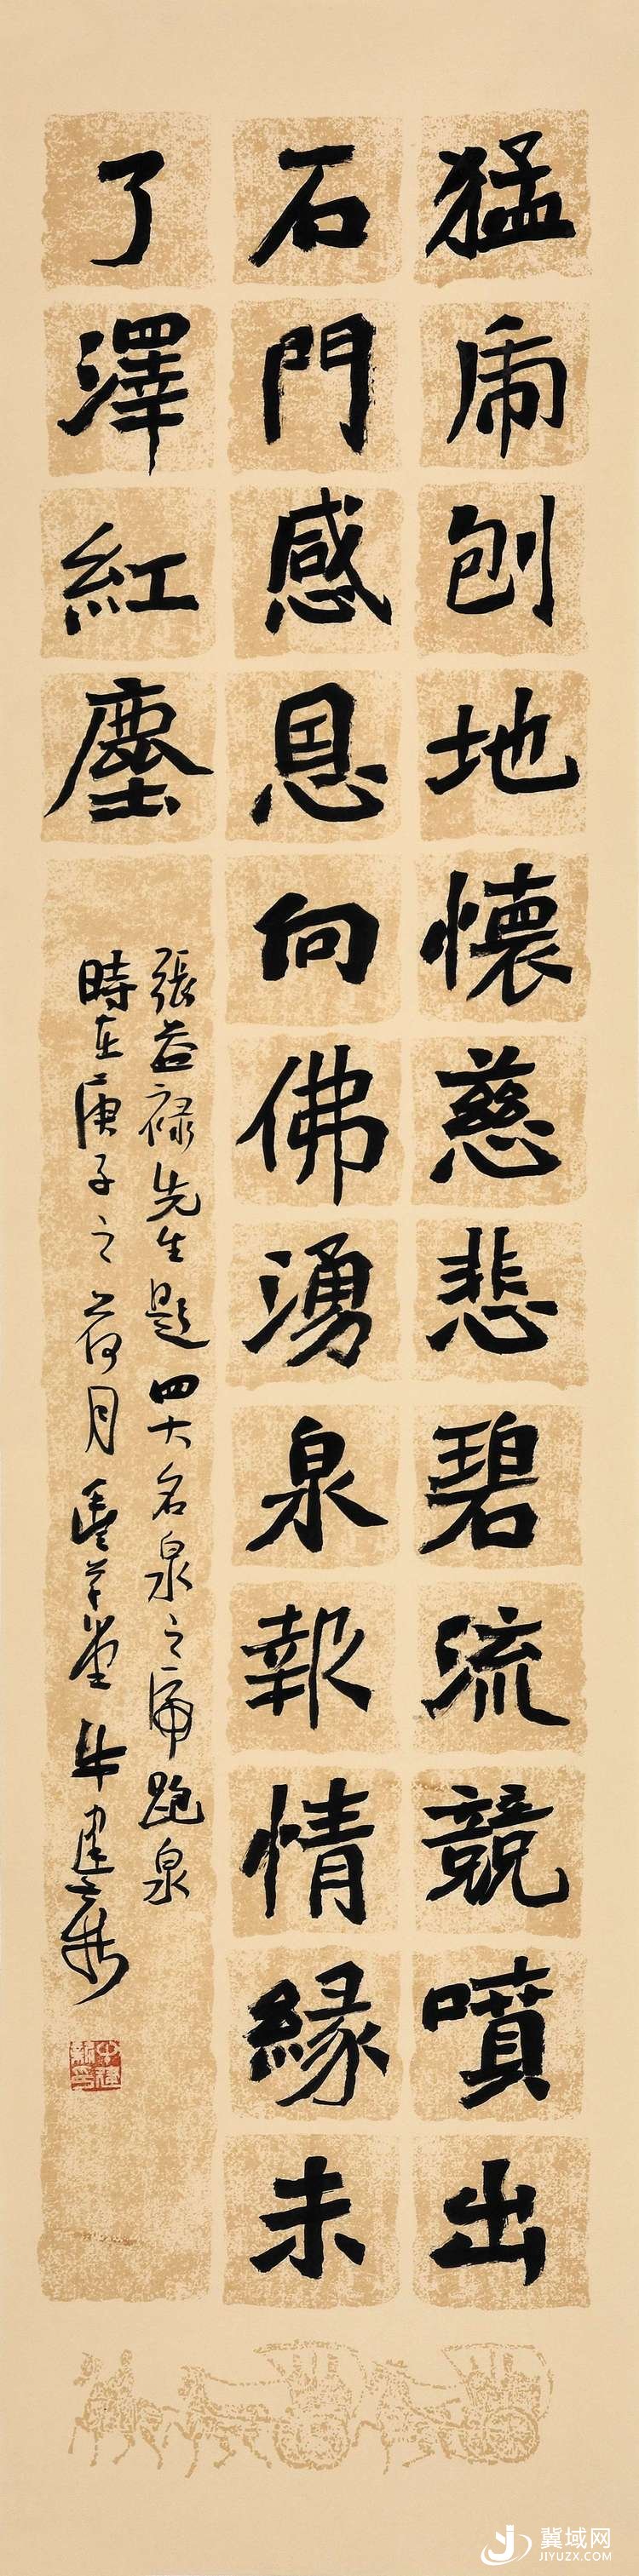 猛虎刨地懷慈悲碧流競噴出
石門感恩向佛湧泉報情緣未
了澤紅塵
張益祿先生題四大名泉之虎跑泉
時在庚子之荷月 草堂牛建新
冀域网
JIYUZX.COM